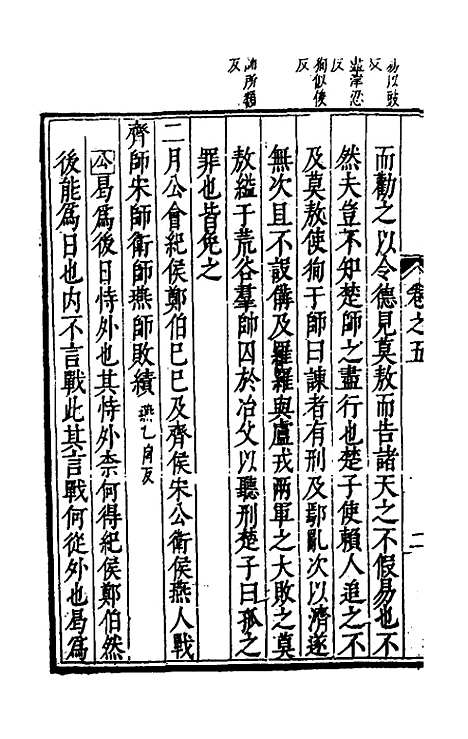 易以豉
反
盡津忍
反
狥似俊
反
諸所類
反
而勸之以令德見莫敖而告諸天之不假易也不
然夫豈不知楚師之盡行也楚子使賴人追之不
及莫敖使狥于師曰諫者有刑及鄢亂次以濟遂
無次且不設備及羅羅與盧戎兩軍之大敗之莫
敖縊于荒谷羣帥囚於冶父以聽刑楚子曰孤之
罪也皆免之
二月公會紀侯鄭伯己巳及齊侯宋公衛侯燕人戰
齊師宋師衛師燕師敗績
燕乙肩反
公曷為後日恃外也其恃外柰何得紀侯鄭伯然
後能爲日也内不言戰此其言戰何從外也曷爲
卷之五
二